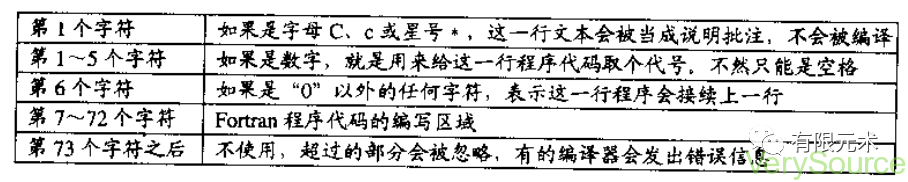 第1个字符 如果是字母C、c或星号*，这一行文本会被当成说明批注，不会被编译
第1~5个字符 如果是数字，就是用来给这一行程序代码取个代号。不然只能是空格
第6个字符 如果是“0”以外的任何字符，表示这一行程序会接续上一行
第7~72个字符 Fortran程序代码的编写区域
第73个字符之后 不使用，超过的部分会被忽略，有的编译器会发出错误信息
有限元术
VerySource